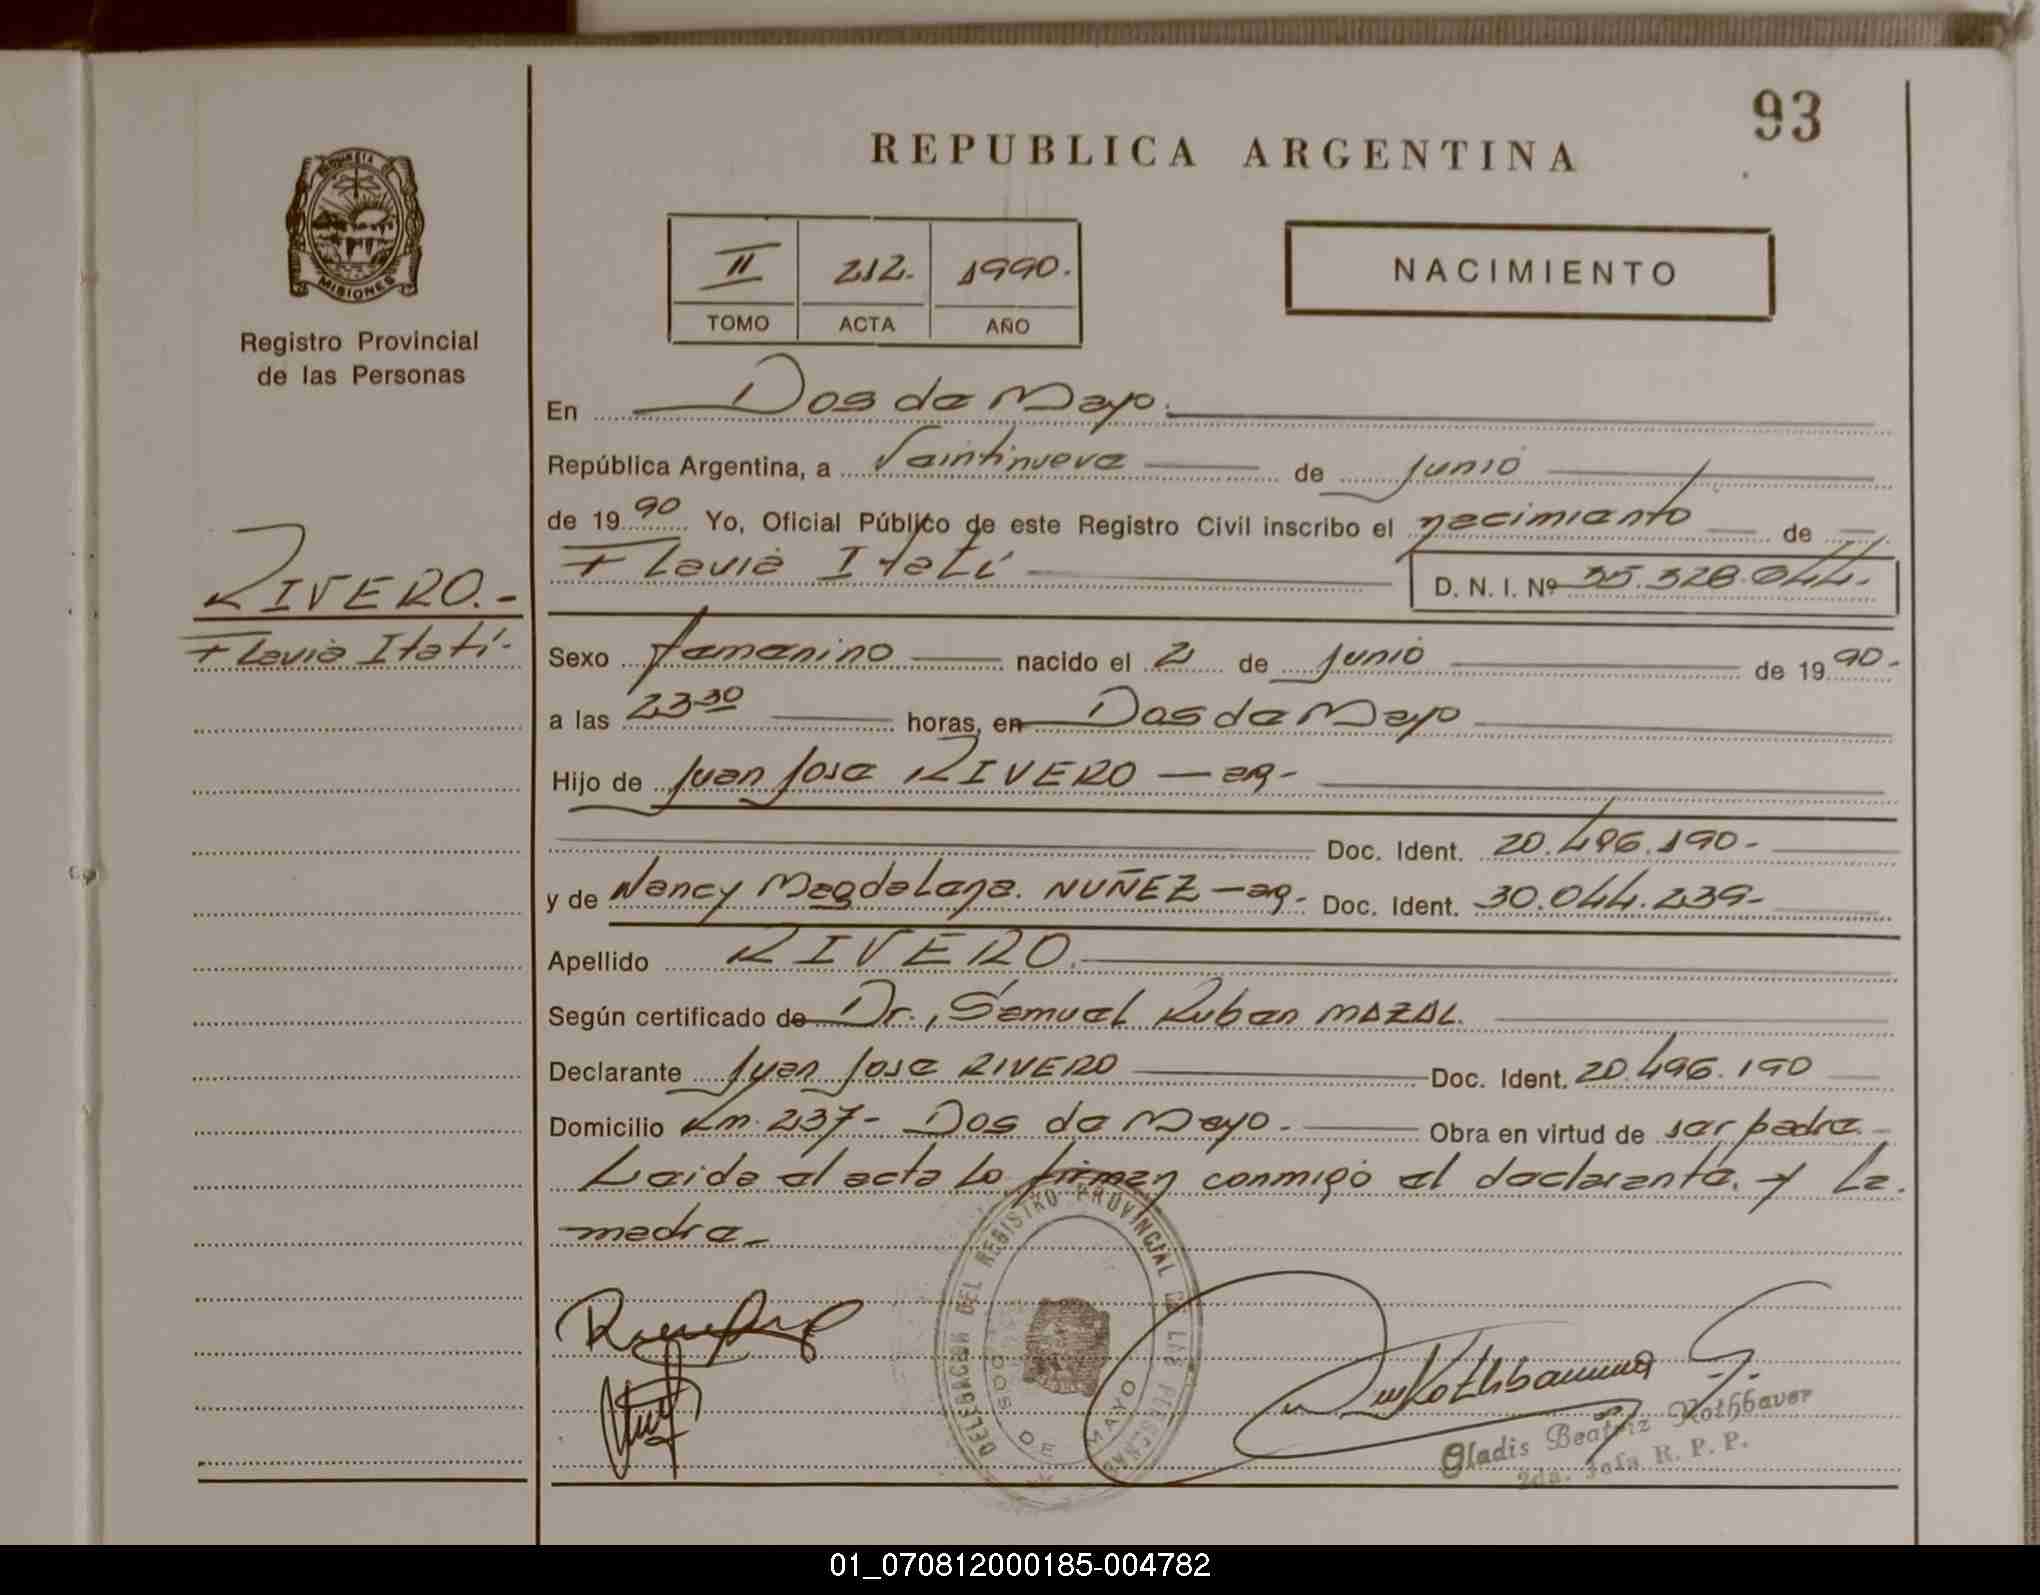 93
REPUBLICA ARGENTINA
MISIONES
II 212. 1990.
TOMO ACTA AÑO
NACIMIENTO
Registro Provincial
de las Personas
RIVERO.-
Flavia Itatí-
En Dos de Mayo.
República Argentina, a Veintinueve de junio
de 1990 Yo, Oficial Público de este Registro Civil inscribo el nacimiento de
Flavia Itatí D. N. I. Nº 35.328.044.-
Sexo femenino nacido el 21 de junio de 1990.-
a las 23-30 horas, en Dos de Mayo
Hijo de Juan José RIVERO — ag-
Doc. Ident. 20.496.190-
y de Nancy Magdalena. NUÑEZ — ag- Doc. Ident. 30.044.239-
Apellido RIVERO.
Según certificado de Dr., Samuel Ruben MAZAL.
Declarante Juan José RIVERO Doc. Ident. 20.496.190
Domicilio Km. 237- Dos de Mayo.- Obra en virtud de ser padre.-
Leida el acta lo firman conmigo el declarante. y la.
madre-
DELEGACION DEL REGISTRO PROVINCIAL DE LAS PERSONAS
DOS DE MAYO
Gladis Beatriz Rothbauer
2da. Jefa R. P. P.
01_070812000185-004782